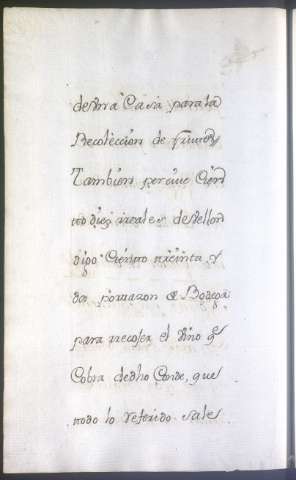 de dhã Casa para la
Recoleccion de frutos
Tambien percive Cien
to diez reales de vellon
digo Ciento treinta y
dos por razon de Bodega
para recoser el vino qe
Cobra de dho Conde, que
todo lo referido sale